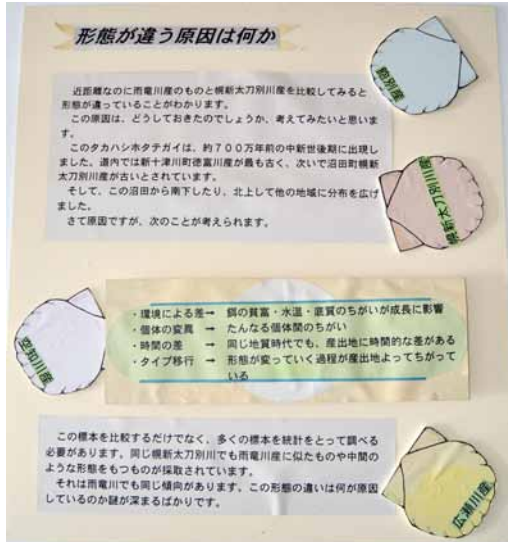 形態が違う原因は何か
近距離なのに雨竜川産のものと幌新太刀別川産を比較してみると
形態が違っていることがわかります。
この原因は、どうしておきたのでしょうか、考えてみたいと思いま
す。
このタカハシホタテガイは、約700万年前の中新世後期に出現し
ました。道内では新十津川町徳富川産が最も古く、次いで沼田町幌新
太刀別川産が古いとされています。
そして、この沼田から南下したり、北上して他の地域に分布を広げ
ました。
さて原因ですが、次のことが考えられます。
幌新太刀別川産
空知川産
・環境による差→ 餌の貧富・水温・底質のちがいが成長に影響
・個体の変異→ たんなる個体間のちがい
・時間の差 → 同じ地質時代でも、産出地に時間的な差がある
・タイプ移行 → 形態が変っていく過程が産出地よってちがって
いる
この標本を比較するだけでなく、多くの標本を統計をとって調べる
必要があります。同じ幌新太刀別川でも雨竜川産に似たものや中間の
ような形態をもつものが採取されています。
それは雨竜川でも同じ傾向があります。この形態の違いは何が原因
しているのか謎が深まるばかりです。
広瀬川産